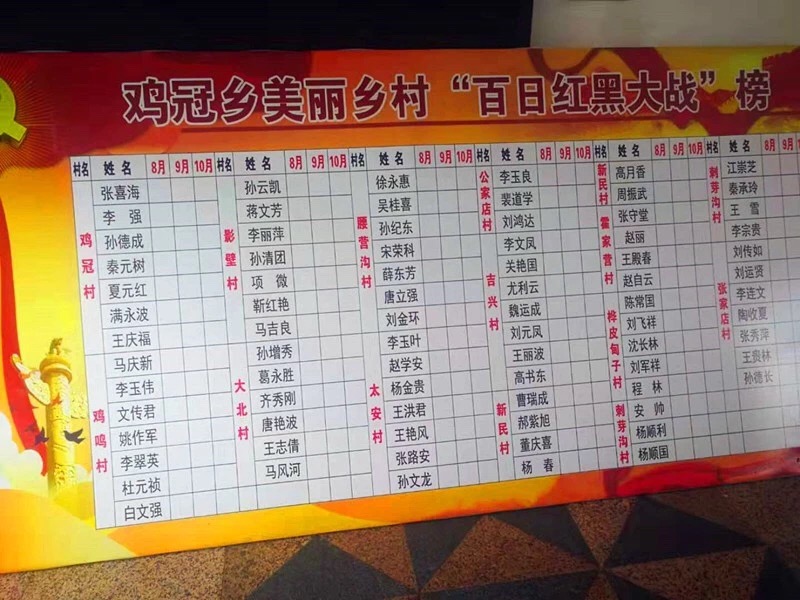 鸡冠乡美丽乡村“百日红黑大战”榜
村名 姓名 8月 9月 10月 村名 姓名 8月 9月 10月 村名 姓名 8月 9月 10月 村名 姓名 8月 9月 10月 村名 姓名 8月 9月 10月 村名 姓名 8月 9月
鸡冠村
张喜海
李强
孙德成
秦元树
夏元红
满永波
王庆福
鸡鸣村
马庆新
李玉伟
文传君
姚作军
李翠英
杜元祯
白文强
影壁村
孙云凯
蒋文芳
李丽萍
孙清团
项微
靳红艳
马吉良
大北村
孙增秀
葛永胜
齐秀刚
唐艳波
王志倩
马风河
腰营沟村
徐永惠
吴桂喜
孙纪东
宋荣科
薛东芳
唐立强
刘金环
太安村
李玉叶
赵学安
杨金贵
王洪君
王艳风
张路安
孙文龙
公家店村
李玉良
裴道学
刘鸿达
李文凤
吉兴村
关艳国
尤利云
魏运成
刘元凤
王丽波
高书东
新民村
曹瑞成
郝紫旭
董庆喜
杨春
新民村
高月香
周振武
霍家营村
张守堂
赵丽
王殿春
赵自云
桦皮甸子村
陈常国
刘飞祥
沈长林
刘军祥
程林
刺芽沟村
安帅
杨顺利
杨顺国
刺芽沟村
江崇芝
秦承玲
王雪
李宗贵
刘传如
张家店村
刘运贤
李连文
陶收夏
张秀萍
王贵林
孙德长